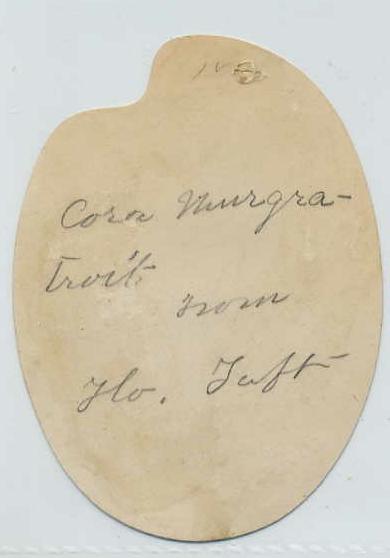 Cora Murgra-
troit
from
Flo. Taft